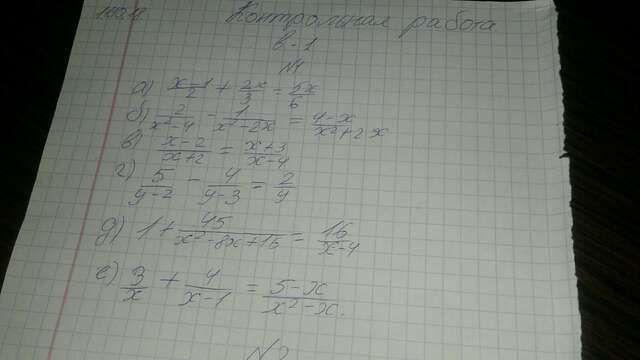 Контрольная работа
в-1
N1
а) x-1/2 + 2x/3 = 5x/6
б) 2/x²-4 - 1/x²-2x = 4-x/x²+2x
в) x-2/x+2 = x+3/x-4
г) 5/y-2 - 4/y-3 = 2/y
д) 1 + 45/x²-8x+16 = 16/x-4
е) 3/x + 4/x-1 = 5-x/x²-x.
N2